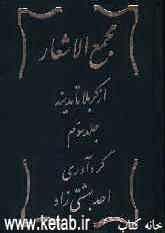 مجمع الاشعار
از کربلا تا مدینه
جلد سوم
گردآوری
احد بهشتی زاد
خانه کتاب
www.ketab.ir